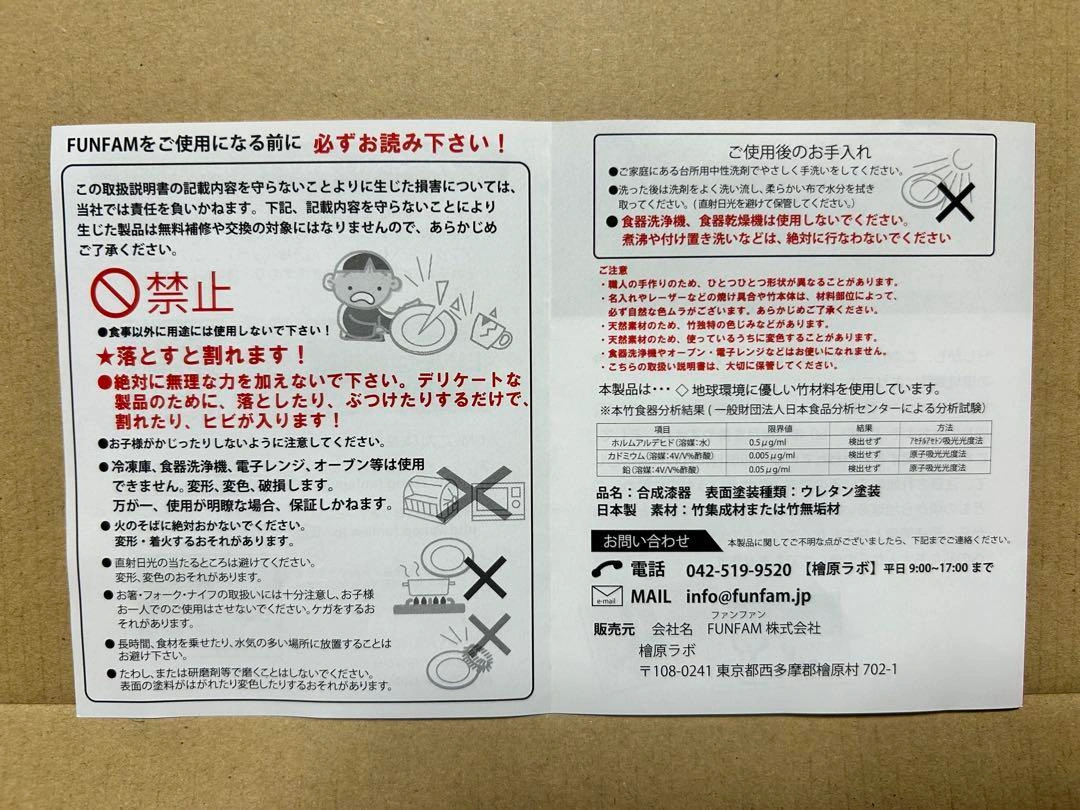 FUNFAMをご使用になる前に 必ずお読み下さい！
この取扱説明書の記載内容を守らないことよりに生じた損害については、
当社では責任を負いかねます。下記、記載内容を守らないことにより
生じた製品は無料補修や交換の対象にはなりませんので、あらかじめ
ご了承ください。
禁止
●食事以外に用途には使用しないで下さい！
★落とすと割れます！
●絶対に無理な力を加えないで下さい。デリケートな
製品のために、落としたり、ぶつけたりするだけで、
割れたり、ヒビが入ります！
●お子様がかじったりしないように注意してください。
●冷凍庫、食器洗浄機、電子レンジ、オーブン等は使用
できません。変形、変色、破損します。
万が一、使用が明瞭な場合、保証しかねます。
●火のそばに絶対おかないでください。
変形・着火するおそれがあります。
●直射日光の当たるところは避けてください。
変形、変色のおそれがあります。
●お箸・フォーク・ナイフの取扱いには十分注意し、お子様
お一人でのご使用はさせないでください。ケガをするお
それがあります。
●長時間、食材を乗せたり、水気の多い場所に放置することは
お避け下さい。
●たわし、または研磨剤等で磨くことはしないでください。
表面の塗料がはがれたり変色したりするおそれがあります。
ご使用後のお手入れ
●ご家庭にある台所用中性洗剤でやさしく手洗いをしてください。
●洗った後は洗剤をよく洗い流し、柔らかい布で水分を拭き
取ってください。(直射日光を避けて保管してください。)
●食器洗浄機、食器乾燥機は使用しないでください。
煮沸や付け置き洗いなどは、絶対に行なわないでください
ご注意
・職人の手作りのため、ひとつひとつ形状が異なることがあります。
・名入れやレーザーなどの焼け具合や竹本体は、材料部位によって、
必ず自然な色ムラがございます。あらかじめご了承ください。
・天然素材のため、竹独特の色じみなどがあります。
・天然素材のため、使っているうちに変色することがあります。
・食器洗浄機やオーブン・電子レンジなどはお使いになれません。
・こちらの取扱い説明書は、大切に保管してください。
本製品は･･･ ◇ 地球環境に優しい竹材料を使用しています。
※本竹食器分析結果 ( 一般財団法人日本食品分析センターによる分析試験)
項目 限界値 結果 方法
ホルムアルデヒド（溶媒：水） 0.5μg/ml 検出せず ｱｾﾁﾙｱｾﾄﾝ吸光光度法
カドミウム（溶媒：4V/V%酢酸） 0.005μg/ml 検出せず 原子吸光光度法
鉛（溶媒：4V/V%酢酸） 0.05μg/ml 検出せず 原子吸光光度法
品名：合成漆器 表面塗装種類：ウレタン塗装
日本製 素材：竹集成材または竹無垢材
お問い合わせ 本製品に関してご不明な点がございましたら、下記までご連絡ください。
電話 042-519-9520 【檜原ラボ】平日 9:00~17:00 まで
e-mail MAIL info@funfam.jp
ファンファン
販売元 会社名 FUNFAM 株式会社
檜原ラボ
〒108-0241 東京都西多摩郡檜原村 702-1